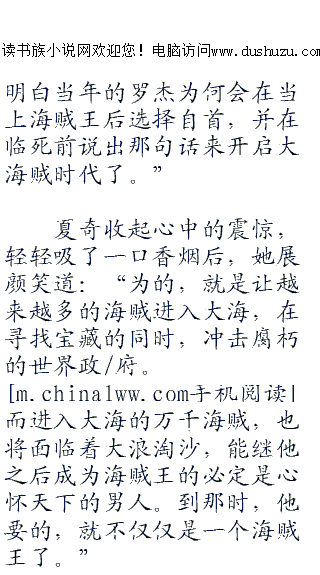 读书族小说网欢迎您！电脑访问www.dushuzu.com
明白当年的罗杰为何会在当
上海贼王后选择自首，并在
临死前说出那句话来开启大
海贼时代了。”
夏奇收起心中的震惊，
轻轻吸了一口香烟后，她展
颜笑道：“为的，就是让越
来越多的海贼进入大海，在
寻找宝藏的同时，冲击腐朽
的世界政/府。
[m.chinalww.com手机阅读|
而进入大海的万千海贼，也
将面临着大浪淘沙，能继他
之后成为海贼王的必定是心
怀天下的男人。到那时，他
要的，就不仅仅是一个海贼
王了。”